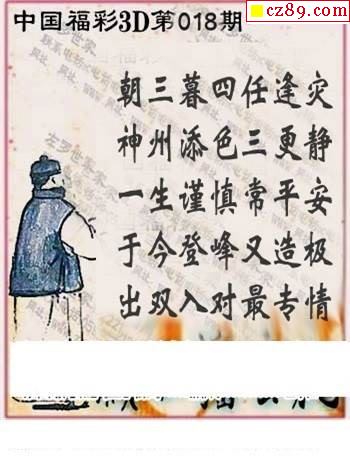 cz89.com
中国福彩3D第018期
朝三暮四任逢灾
神州添色三更静
一生谨慎常平安
于今登峰又造极
出双入对最专情